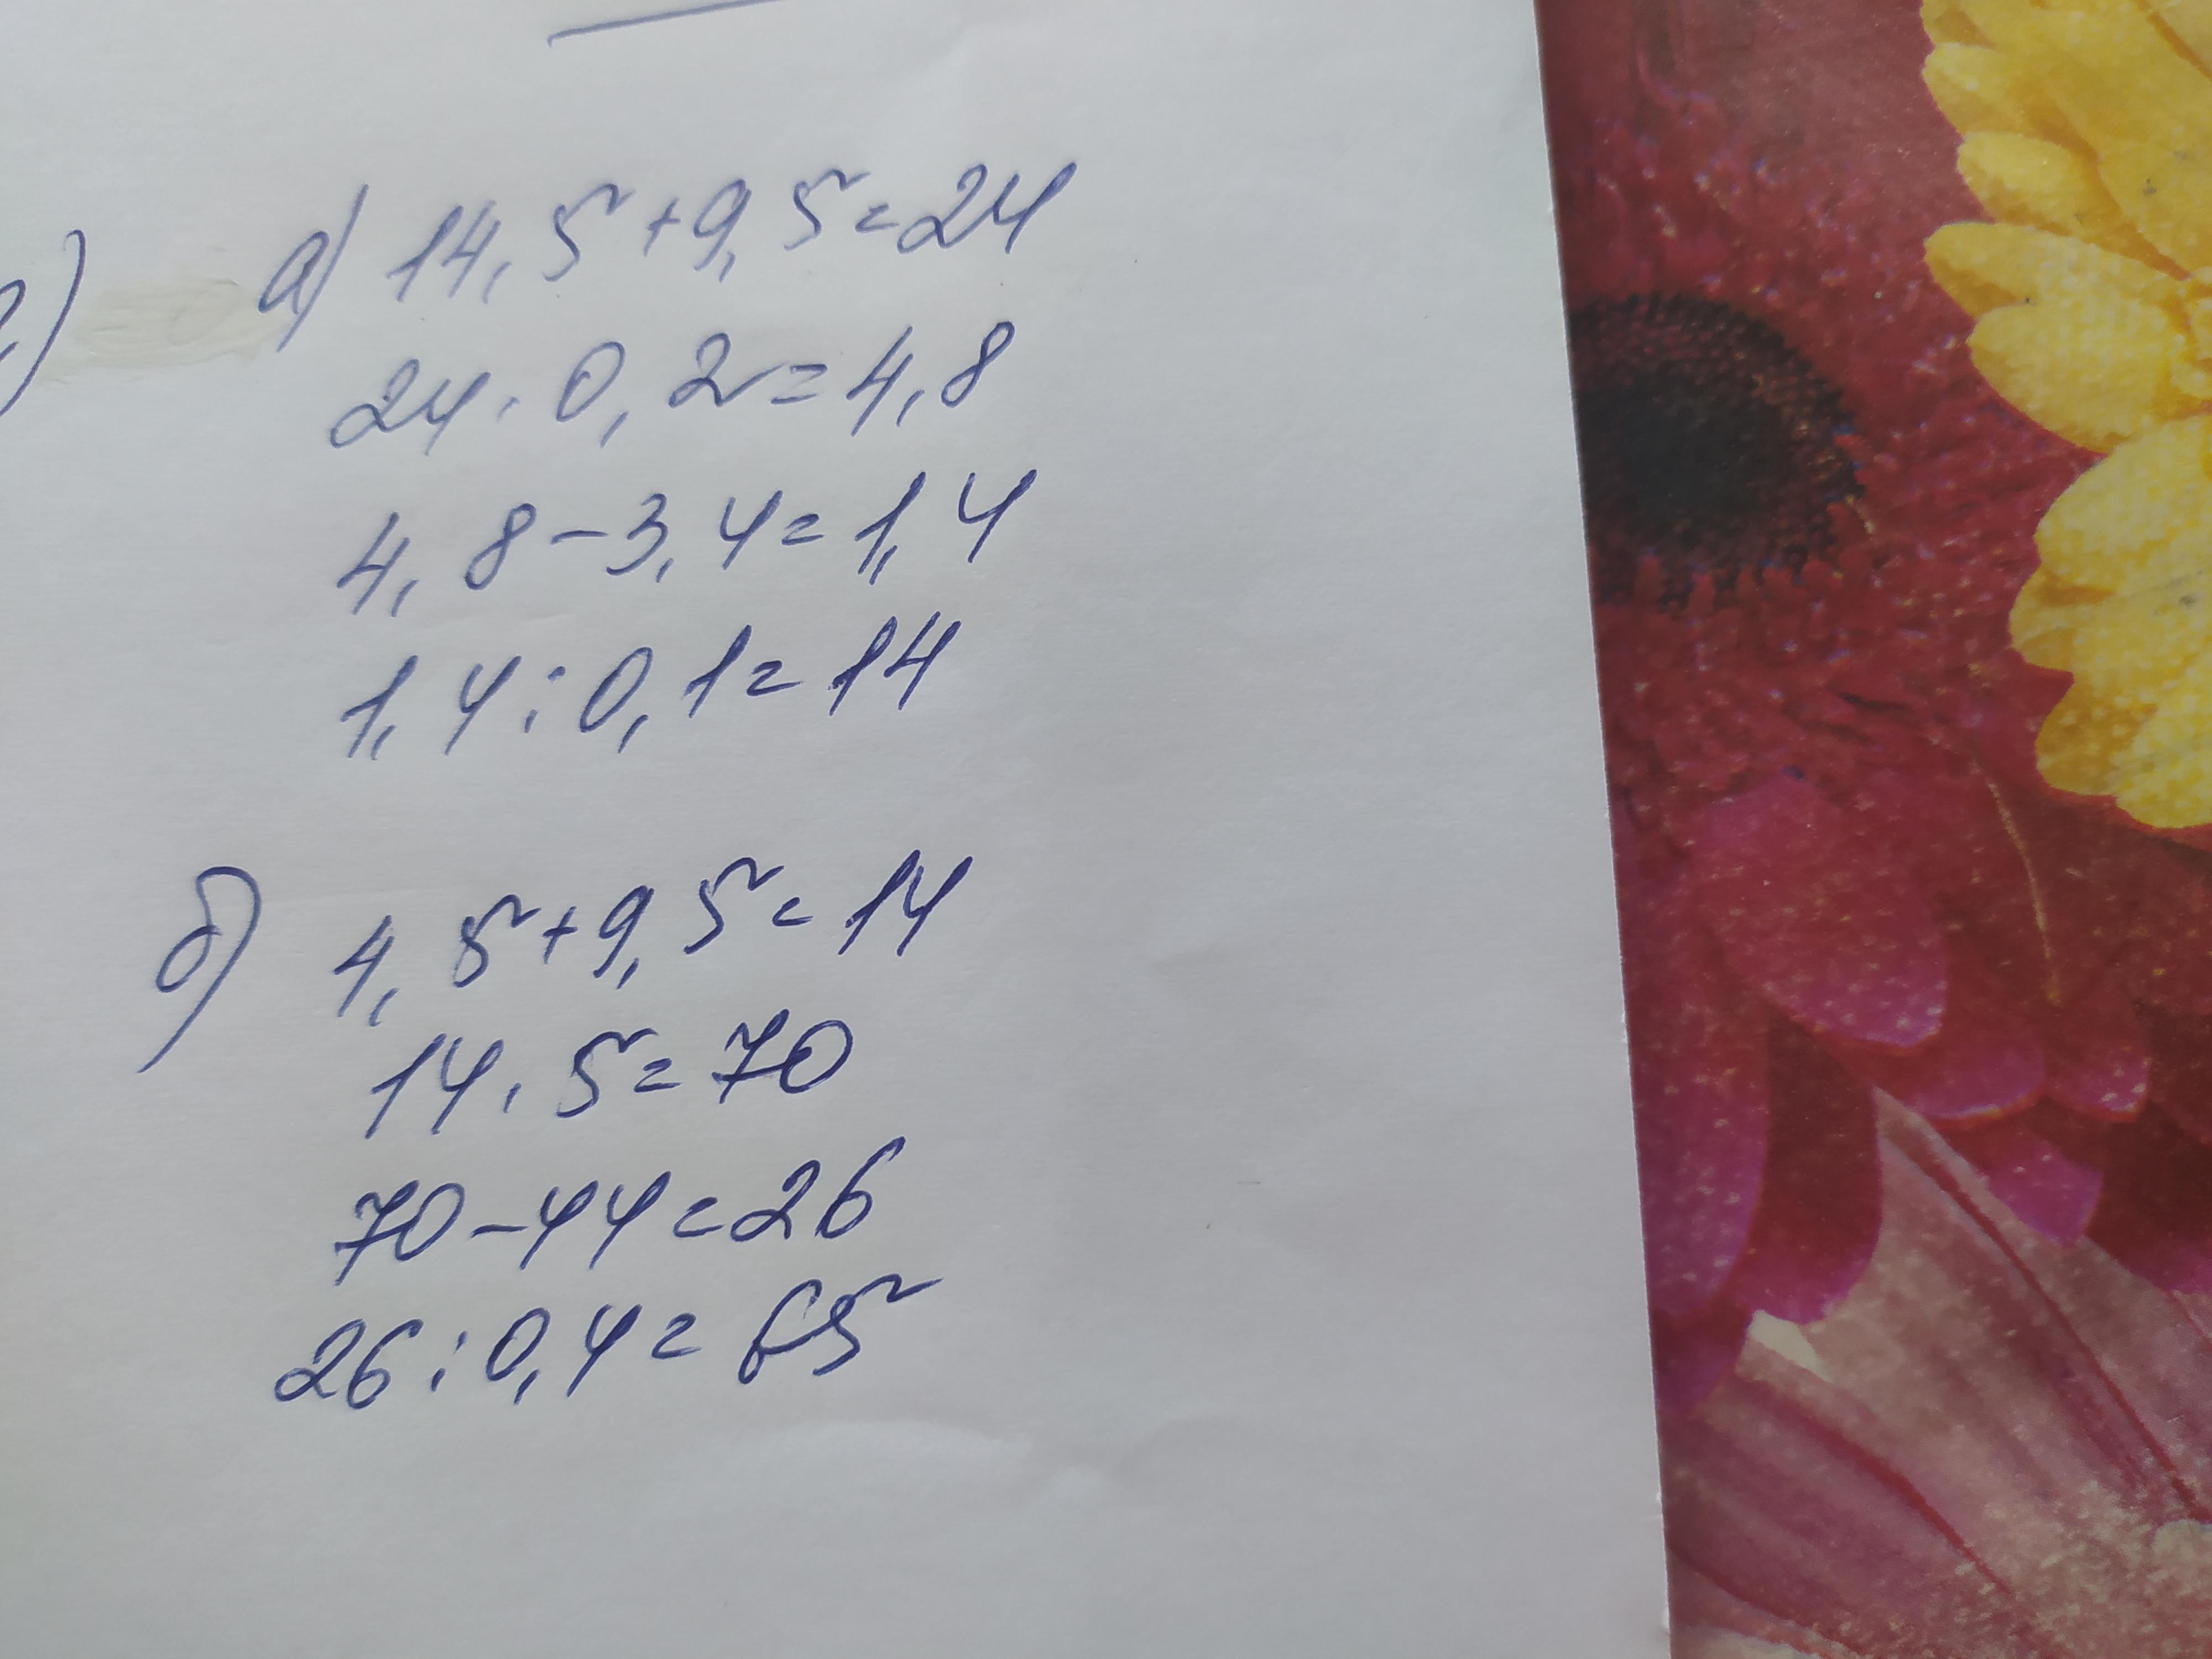 2) а) 14,5+9,5=24
24·0,2=4,8
4,8-3,4=1,4
1,4:0,1=14
б) 4,5+9,5=14
14·5=70
70-44=26
26:0,4=65